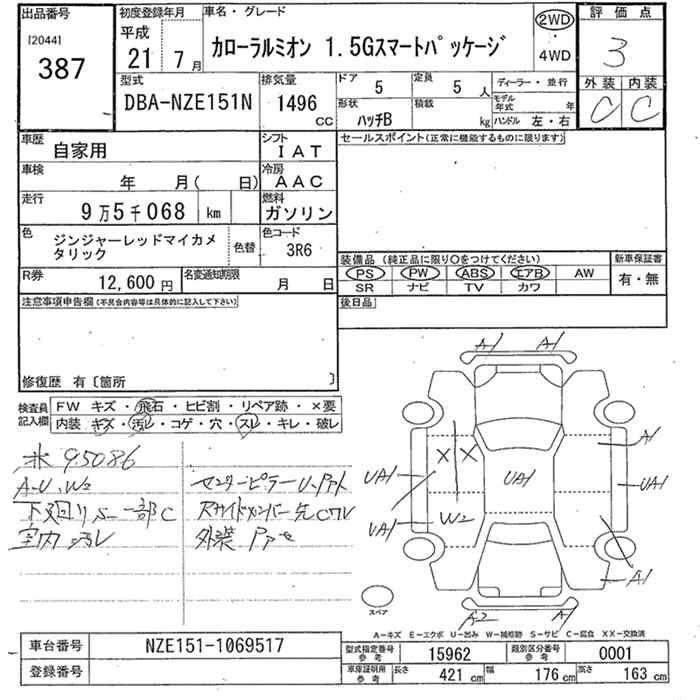 出品番号
[2044]
387
初度登録年月
平成
21年7月
車名・グレード
カローラルミオン 1.5Gスマートパッケージ
2WD
4WD
評価点
3
外装 内装
C C
型式
DBA-NZE151N
排気量
1496 CC
ドア 5
定員 5人
形状 ハッチB
積載 kg
ディーラー・並行
モデル年式 年
ハンドル 左・右
車歴
自家用
シフト
IAT
車検
年 月( 日)
冷房
AAC
走行
9万5千068 km
燃料
ガソリン
色
ジンジャーレッドマイカメタリック
色替
色コード
3R6
R券
12,600円
名変通知期限
月 日
セールスポイント(正常に機能するものに限ります)
装備品(純正品に限り○をつけてください)
PS PW ABS エアB AW
SR ナビ TV カワ
新車保証書
有・無
後日品
注意事項申告欄(不具合内容等は具体的に記入して下さい)
修復歴 有〔箇所 〕
検査員記入欄
FW キズ・飛石・ヒビ割・リペア跡・×要
内装 キズ・汚レ・コゲ・穴・スレ・キレ・破レ
※ 95086
A・U、W2
下廻りS 一部C
室内汚レ
センターピラーU・Pアト
外装 Pアセ
A1 A1
A1
X X
UA1
UA1
UA1
UA1
W2
A1
A2 A1
スペア
A-キズ E-エクボ U-凹み W-補修跡 S-サビ C-腐食 XX-交換済
車台番号
NZE151-1069517
登録番号
型式指定番号参考
15962
類別区分番号参考
0001
車庫証明用参考
長さ 421 cm
幅 176 cm
高さ 163 cm